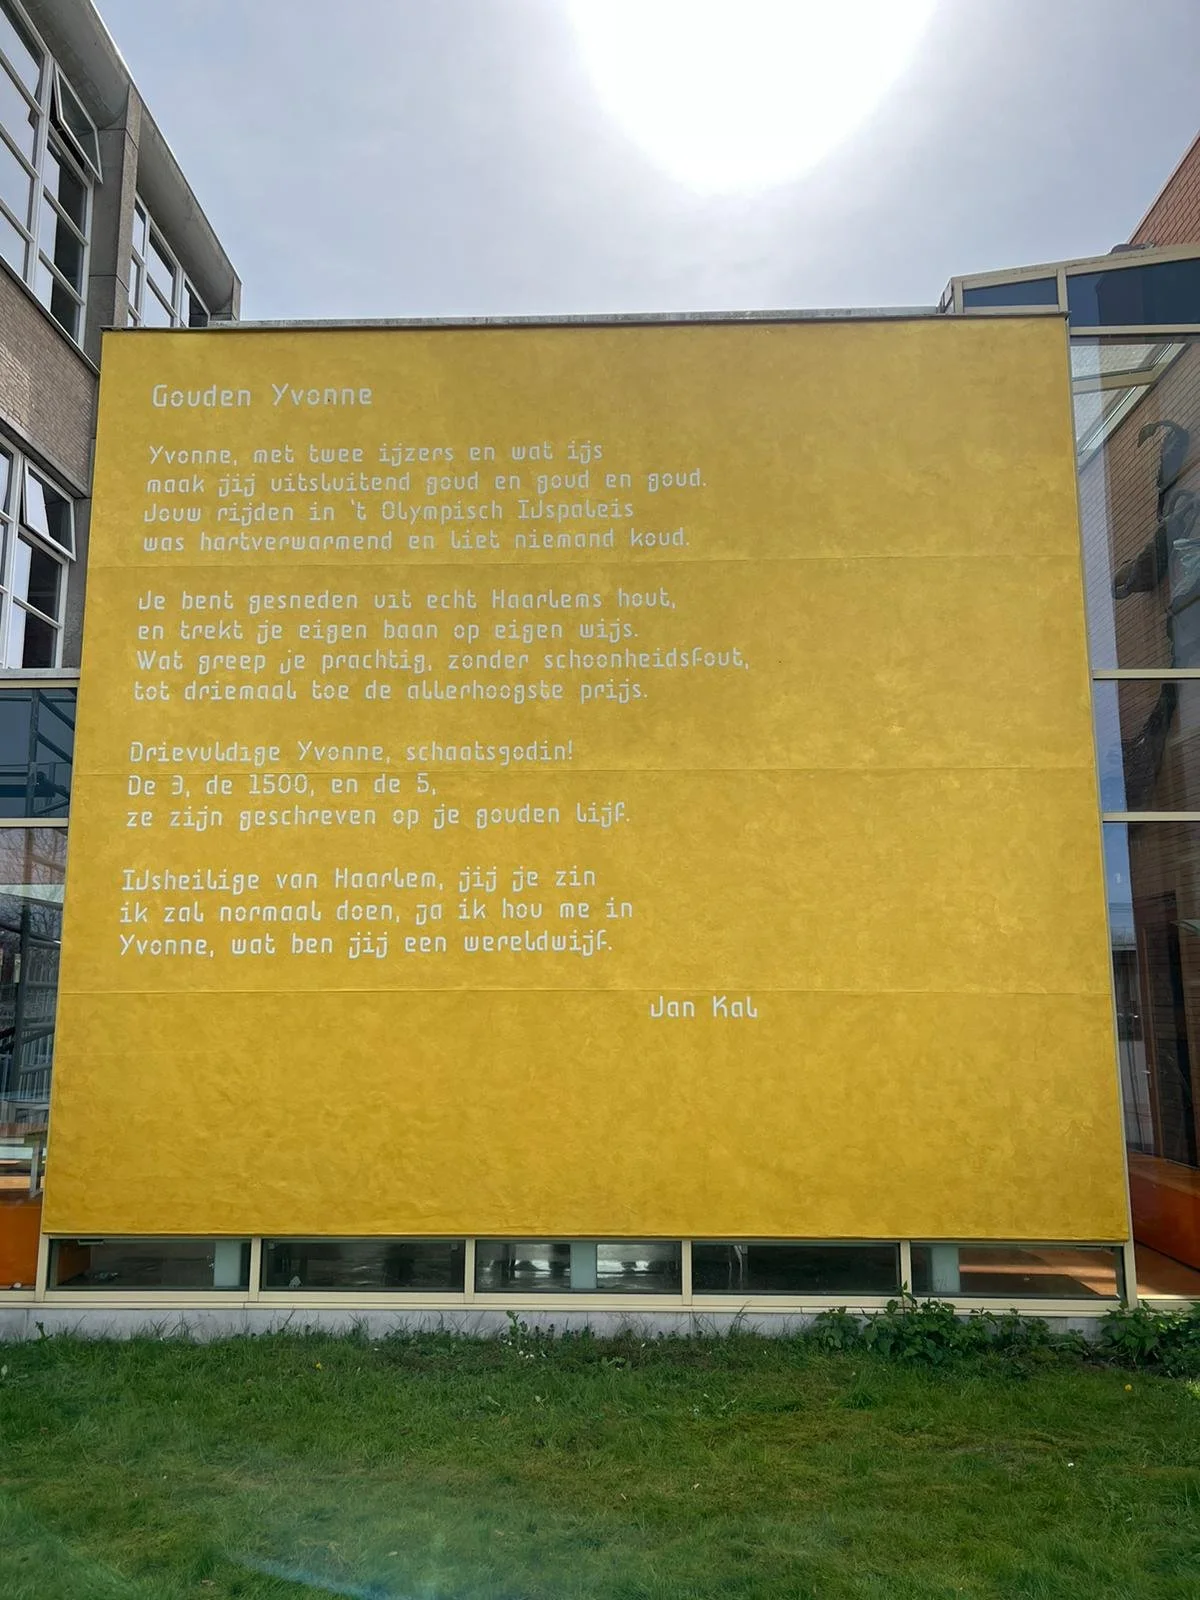 Gouden Yvonne
Yvonne, met twee ijzers en wat ijs
maak jij uitsluitend goud en goud en goud.
Jouw rijden in 't Olympisch IJspaleis
was hartverwarmend en liet niemand koud.
Je bent gesneden uit echt Haarlems hout,
en trekt je eigen baan op eigen wijs.
Wat greep je prachtig, zonder schoonheidsfout,
tot driemaal toe de allerhoogste prijs.
Drievuldige Yvonne, schaatsgodin!
De 3, de 1500, en de 5,
ze zijn geschreven op je gouden lijf.
IJsheilige van Haarlem, jij je zin
ik zal normaal doen, ja ik hou me in
Yvonne, wat ben jij een wereldwijf.
Jan Kal